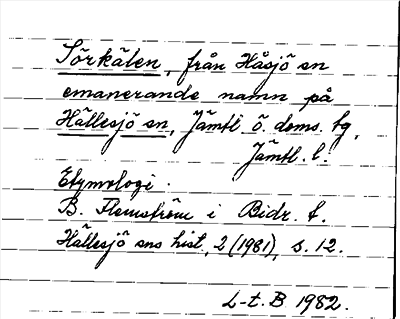 Sörkälen, från Håsjö sn
emanerande namn på
Hällesjö sn, Jämtl ö. doms. tg,
Jämtl. l.
Etymologi.
B. Flemström i Bidr. t.
Hällesjö sns hist, 2 (1981), s. 12.
L-t. B 1982.